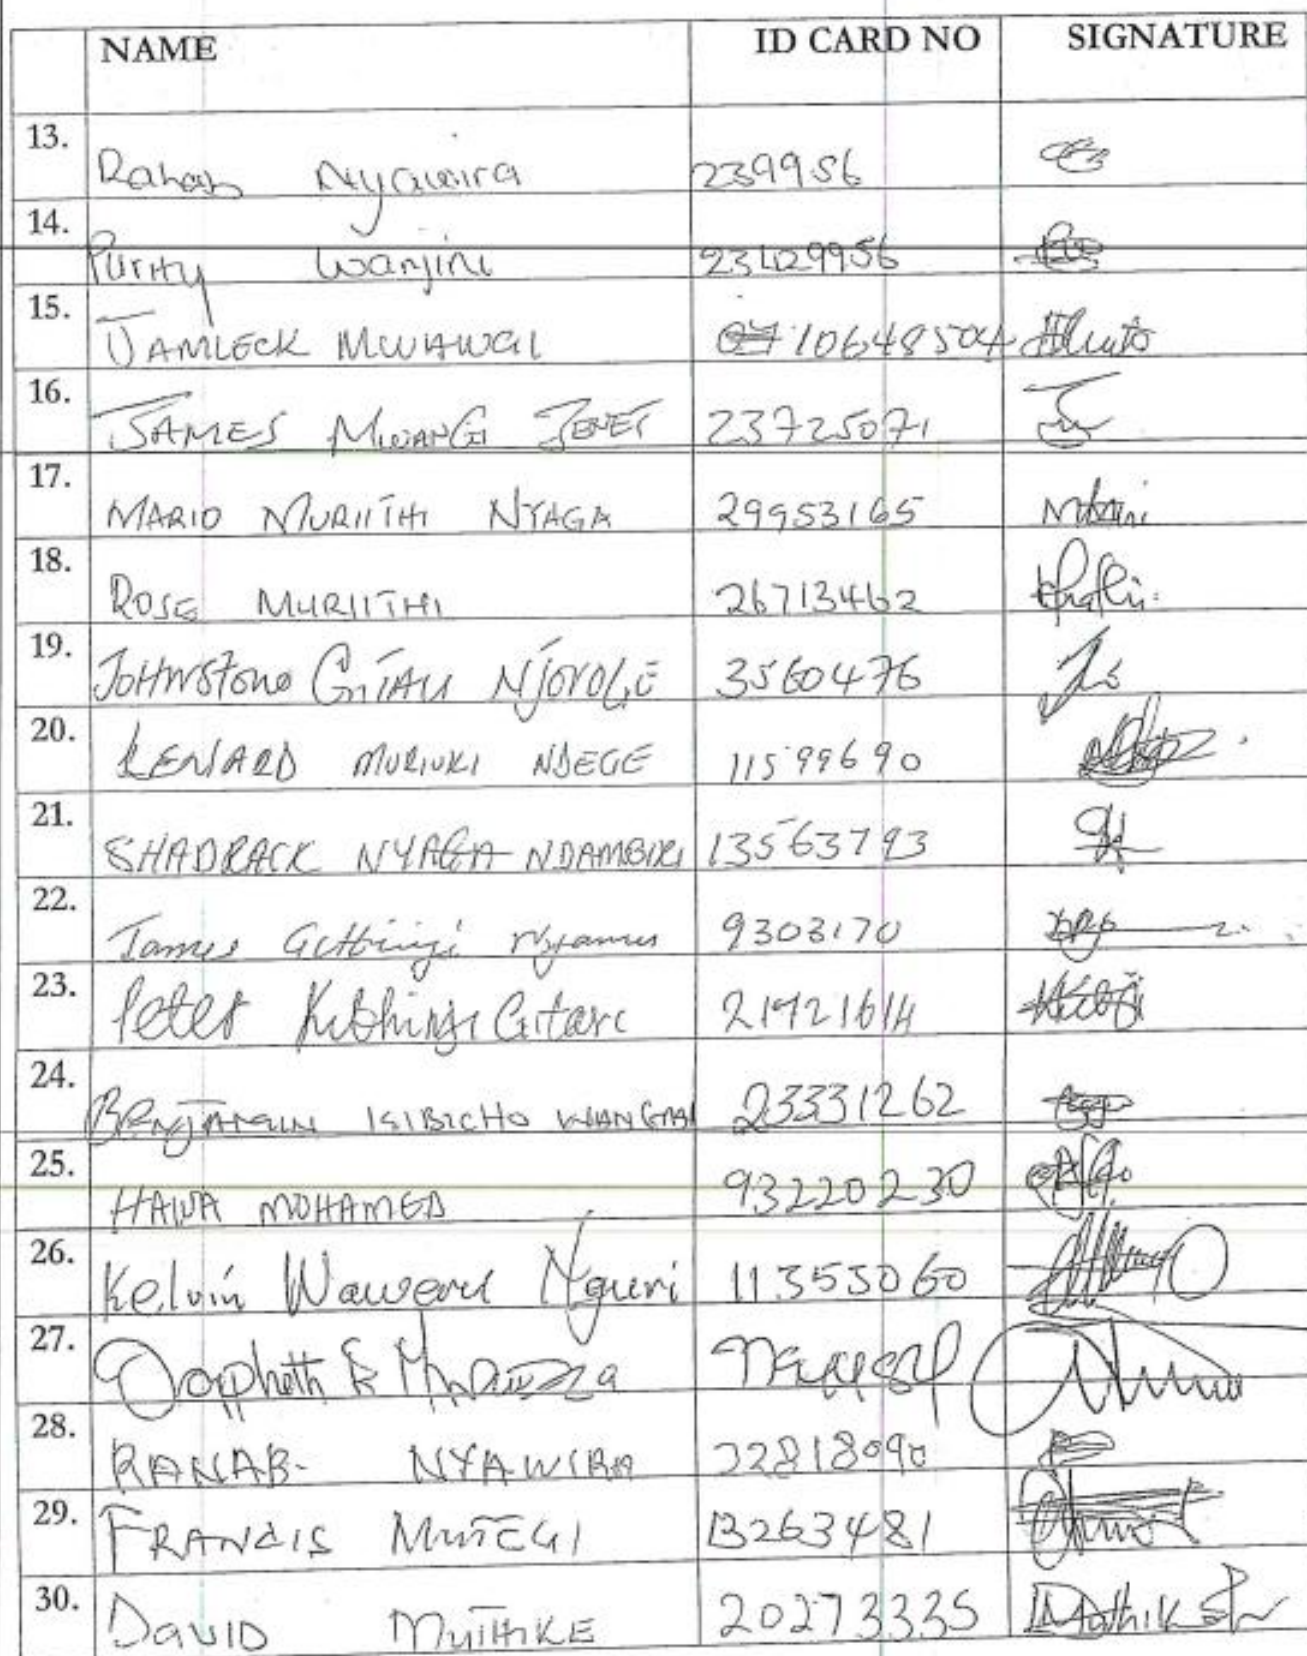 NAME ID CARD NO SIGNATURE
13. Rahab Nyawira 239956
14. Purity Wanjini 23429956
15. JAMLECK MWAWGI 106648504
16. JAMES MWANGI JENET 23725071
17. MARIO MURIITHI NYAGA 29953165
18. ROSE MURIITHI 26713462
19. JOHNSTONE GITAU NJOROGE 3560476
20. LENARD MURIUKI NDEGE 11599690
21. SHADRACK NYAGA NDAMBIRI 13563793
22. James Githinji Nyamu 9303170
23. Peter Kithinji Gitari
24. BENJAMIN KIBICHO WANGAI 23331262
25. HAWA MOHAMED 93220230
26. Kelvin Waweru Nguri 11353060
27.
28. RAHAB NYAWIRA 22818090
29. FRANCIS MUTEGI 13263481
30. DAVID MUTHIKE 20273335